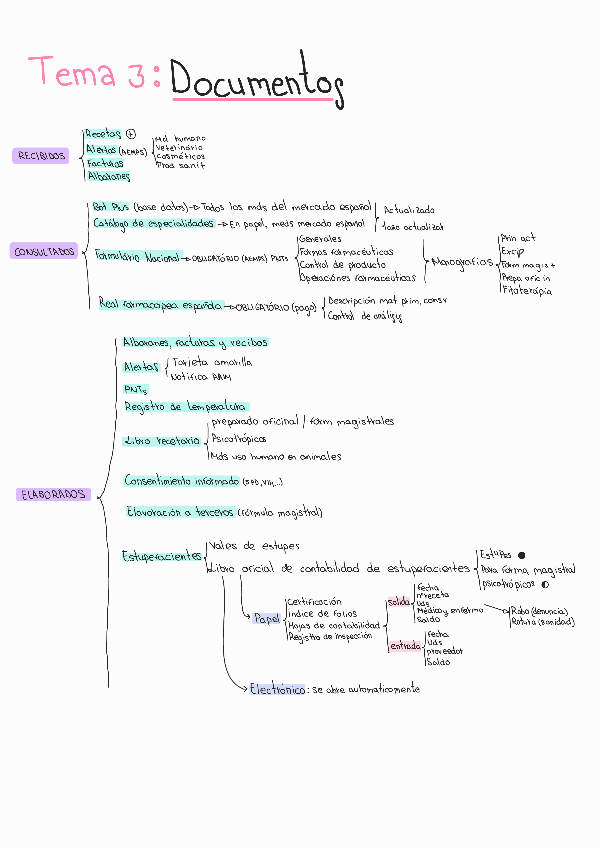 Tema 3: Documentos
RECIBIDOS
Recetas
Alertas (AEMPS)
Facturas
Albaranes
Md humano
Veterinario
Cosméticos
Prod sanit
CONSULTADOS
Bot Plus (base datos) → Todos los mds del mercado español
Catálogo de especialidades → En papel, meds mercado español
Actualizado
1 año actualizar
Formulario Nacional → OBLIGATÓRIO (AEMPS) PNTS
Generales
Formas farmacéuticas
Control de producto
Operaciónes farmacéuticas
Monografías
Prin act
Excip
Form magist
Prepa oficin
Fitoterápia
Real farmacopea española → OBLIGATÓRIO (pago)
Descripción mat prim, consv
Control de análisis
ELABORADOS
Albaranes, facturas y recibos
Alertas
Tarjeta amarilla
Notifica RAM
PNTs
Registro de temperatura
Libro recetario
preparado oficinal / form magistrales
Psicotrópicos
Mds uso humano en animales
Consentimiento informado (SPD, VIH,...)
Elavoración a terceros (fórmula magistral)
Estuperacientes
Vales de estupes
Libro oficial de contabilidad de estuperacientes
Estupes
Para fórma magistral
psicotrópicos
Papel
Certificación
índice de folios
Hojas de contabilidad
Registro de inspección
salida
fecha
nº receta
Uds
Médico y enfermo
Saldo
Robo (denuncia)
Rotura (sanidad)
entrada
fecha
Uds
proveedor
Saldo
Electrónico: se abre automaticamente